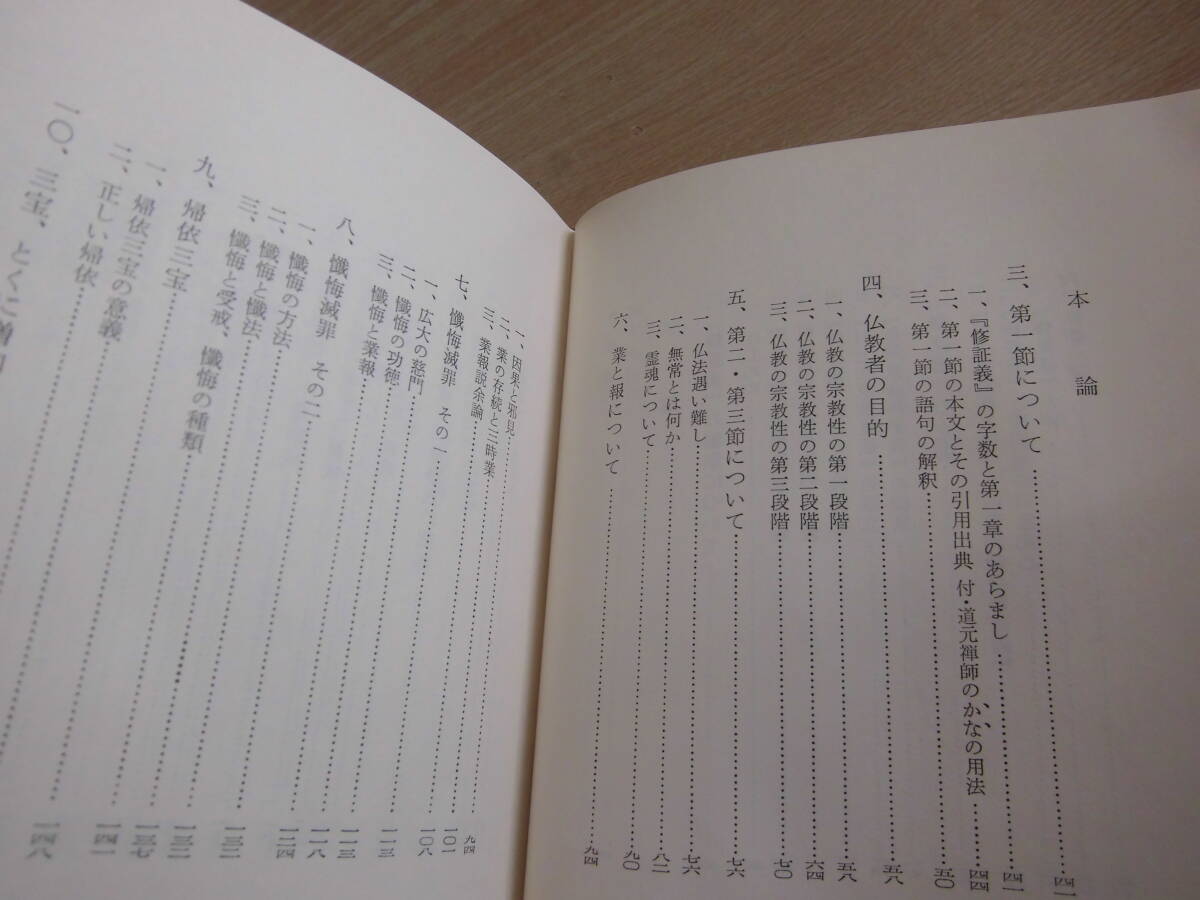 本論
三、第一節について……四一
一、『修証義』の字数と第一章のあらまし……四一
二、第一節の本文とその引用出典 付・道元禅師のかなの用法……四四
三、第一節の語句の解釈……五〇
四、仏教者の目的……五八
一、仏教の宗教性の第一段階……五八
二、仏教の宗教性の第二段階……六四
三、仏教の宗教性の第三段階……七〇
五、第二・第三節について……七六
一、仏法遇い難し……七六
二、無常とは何か……八二
三、霊魂について……九〇
六、業と報について……九四
一、因果と邪見……九四
二、業の存続と三時業……一〇一
三、業報説余論……一〇八
七、懺悔滅罪 その一……一一三
一、広大の慈門……一一三
二、懺悔の功徳……一一八
三、懺悔と業報……一二四
八、懺悔滅罪 その二
一、懺悔の方法
二、懺悔と懺法
三、懺悔と受戒、懺悔の種類
九、帰依三宝
一、帰依三宝の意義……一三七
二、正しい帰依……一四一
一〇、三宝、とくに僧……一四八